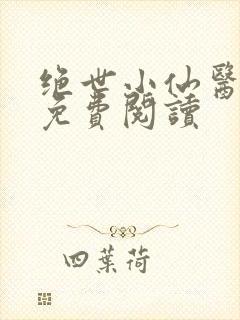 绝世小仙醫
免費閱讀
四葉荷